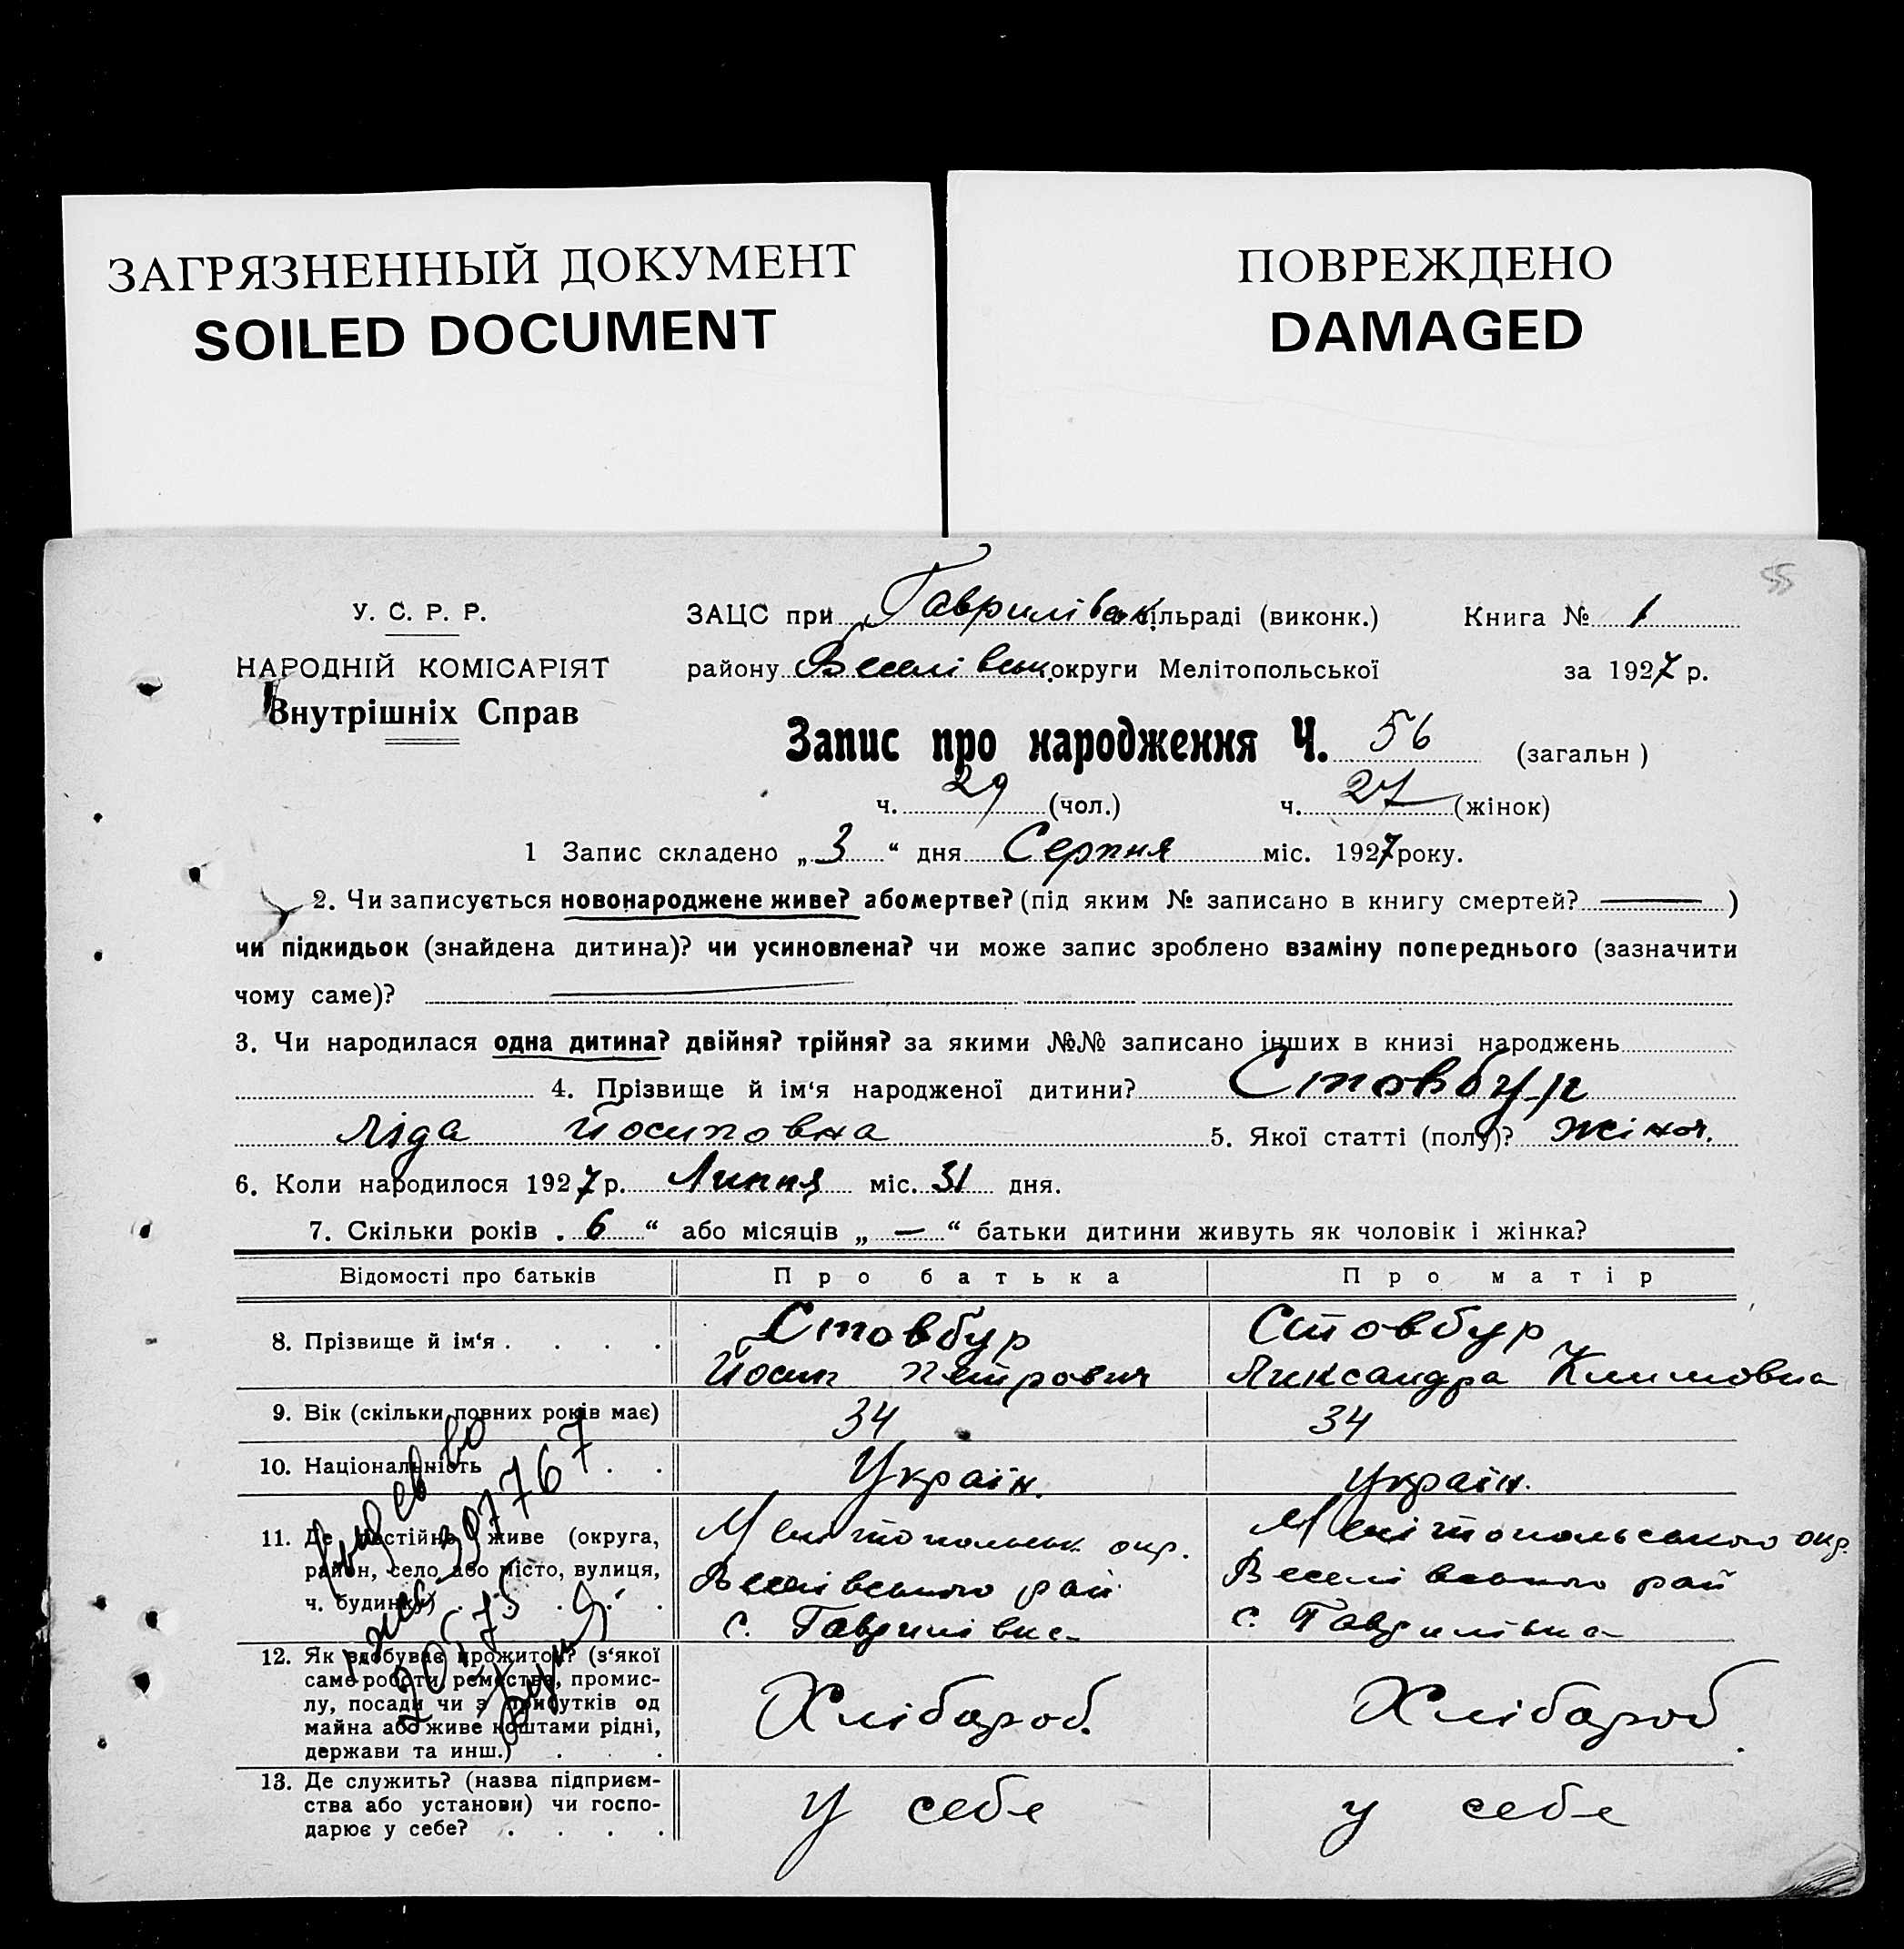 ЗАГРЯЗНЕННЫЙ ДОКУМЕНТ
SOILED DOCUMENT
ПОВРЕЖДЕНО
DAMAGED
55
У. С. Р. Р.
НАРОДНІЙ КОМІСАРІЯТ
Внутрішніх Справ
ЗАЦС при Гаврилівськ. сільраді (виконк.) Книга № 1
району Веселівськ. округи Мелітопольської за 1927 р.
Запис про народження Ч. 56 (загальн)
ч. 29 (чол.) ч. 27 (жінок)
1 Запис складено „ 3 “ дня Серпня міс. 1927 року.
2. Чи записується новонароджене живе? або мертве? (під яким № записано в книгу смертей? — )
чи підкидьок (знайдена дитина)? чи усиновлена? чи може запис зроблено взаміну попереднього (зазначити
чому саме)? —
3. Чи народилася одна дитина? двійня? трійня? за якими №№ записано інших в книзі народжень
4. Прізвище й ім‘я народженої дитини? Стовбур
Ліда Йосиповна 5. Якої статті (полу)? жіноч.
6. Коли народилося 1927 р. Липня міс. 31 дня.
7. Скільки років „ 6 “ або місяців „ — “ батьки дитини живуть як чоловік і жінка?
Відомості про батьків Про батька Про матір
8. Прізвище й ім‘я . . . . Стовбур Стовбур
Йосип Петрович Александра Климовна
9. Вік (скільки повних років має) 34 34
10. Національність . . Україн. Україн.
11. Де постійно живе (округа, Мелітопольськ. окр. Мелітопольського окр.
район, село або місто, вулиця, Веселівського рай Веселівського рай
ч. будинку) . . . . с. Гаврилівка с. Гаврилівка
12. Як здобуває прожиток? (з‘якої
саме роботи, ремества, промис-
лу, посади чи з прибутків од Хлібороб. Хлібороб
майна або живе коштами рідні,
держави та инш.) . . .
13. Де служить? (назва підприєм-
ства або установи) чи госпо- у себе у себе
дарює у себе? . . . .
397767